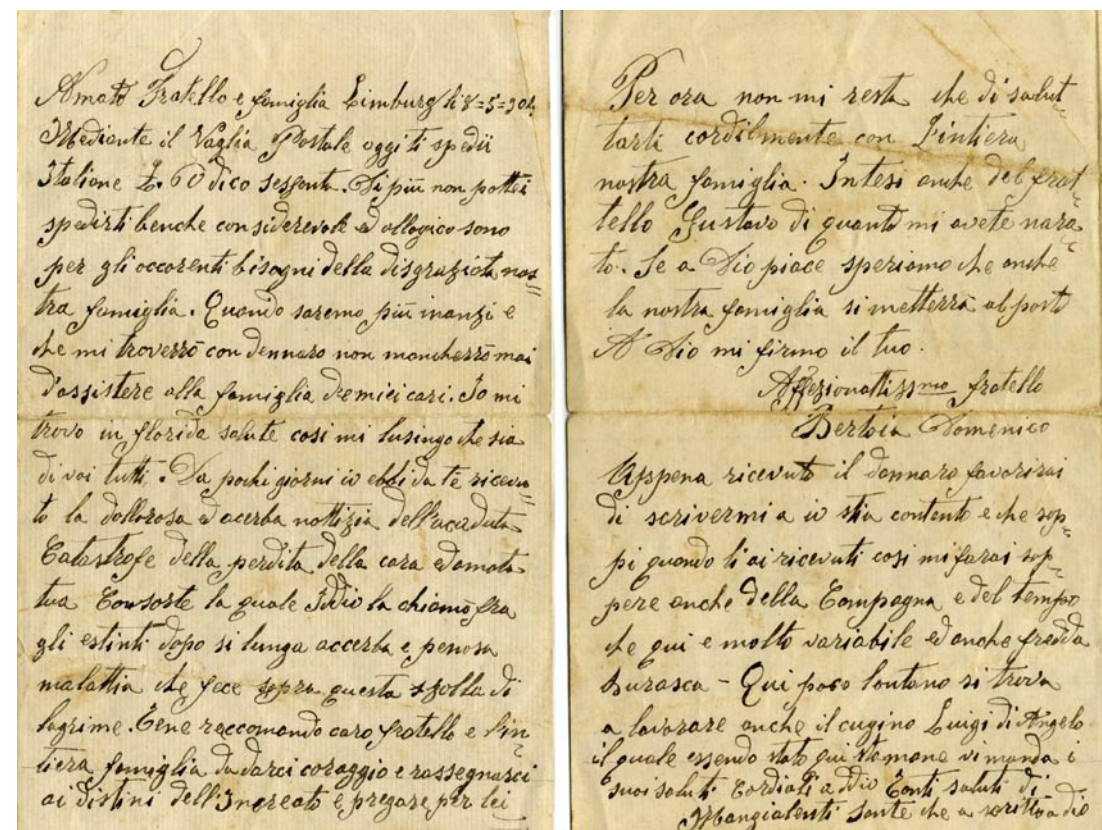 Amato Fratello e famiglia Limburg li 8=5=904
Mediante il Vaglia Postale oggi ti spedii
Italiane L. 60 dico sessanta. Di più non pottei
spedirti benche considerevole ed allogico sono
per gli occorenti bisogni della disgraziata nos"
tra famiglia. Quando saremo più inanzi e
che mi troverrò con dennaro non mancherrò mai
d'assistere alla famiglia de miei cari. Io mi
trovo in florida salute cosi mi lusingo che sia
di voi tutti. Da pochi giorni io ebbi da te ricevu"
to la dollorosa ed acerba nottizia dell'acaduta
Catastrofe della perdita della cara ed amata
tua Consorte la quale Iddio la chiamò fra
gli estinti dopo si lunga accerba e penosa
malattia che fece sopra questa valle di
lagrime. Tene raccomando caro fratello e l'in=
tiera famiglia da darci coraggio e rassegnarci
ai distini dell'Increato e pregare per lei
Per ora non mi resta che di salut=
tarti cordilmente con l'intiera
nostra famiglia. Intesi anche del frat=
tello Gustavo di quanto mi avete nara=
to. Se a Dio piace speriamo che anche
la nostra famiglia si metterrà al posto
A Dio mi firmo il tuo.
Affezionattissmo fratello
Bertoia Domenico
Appena ricevuto il dennaro favorirai
di scrivermi a io stia contento e che sap=
pi quando li ai ricevuti cosi mi farai sap=
pere anche della Campagna e del tempo
che qui e molto variabile ed anche fredda
burasca - Qui poco lontano si trova
a lavorare anche il cugino Luigi di Angelo
il quale essendo stato qui stamane vi manda i
suoi saluti Cordiali addio Tanti saluti di
Mangialenti Sante che a scritto a dio